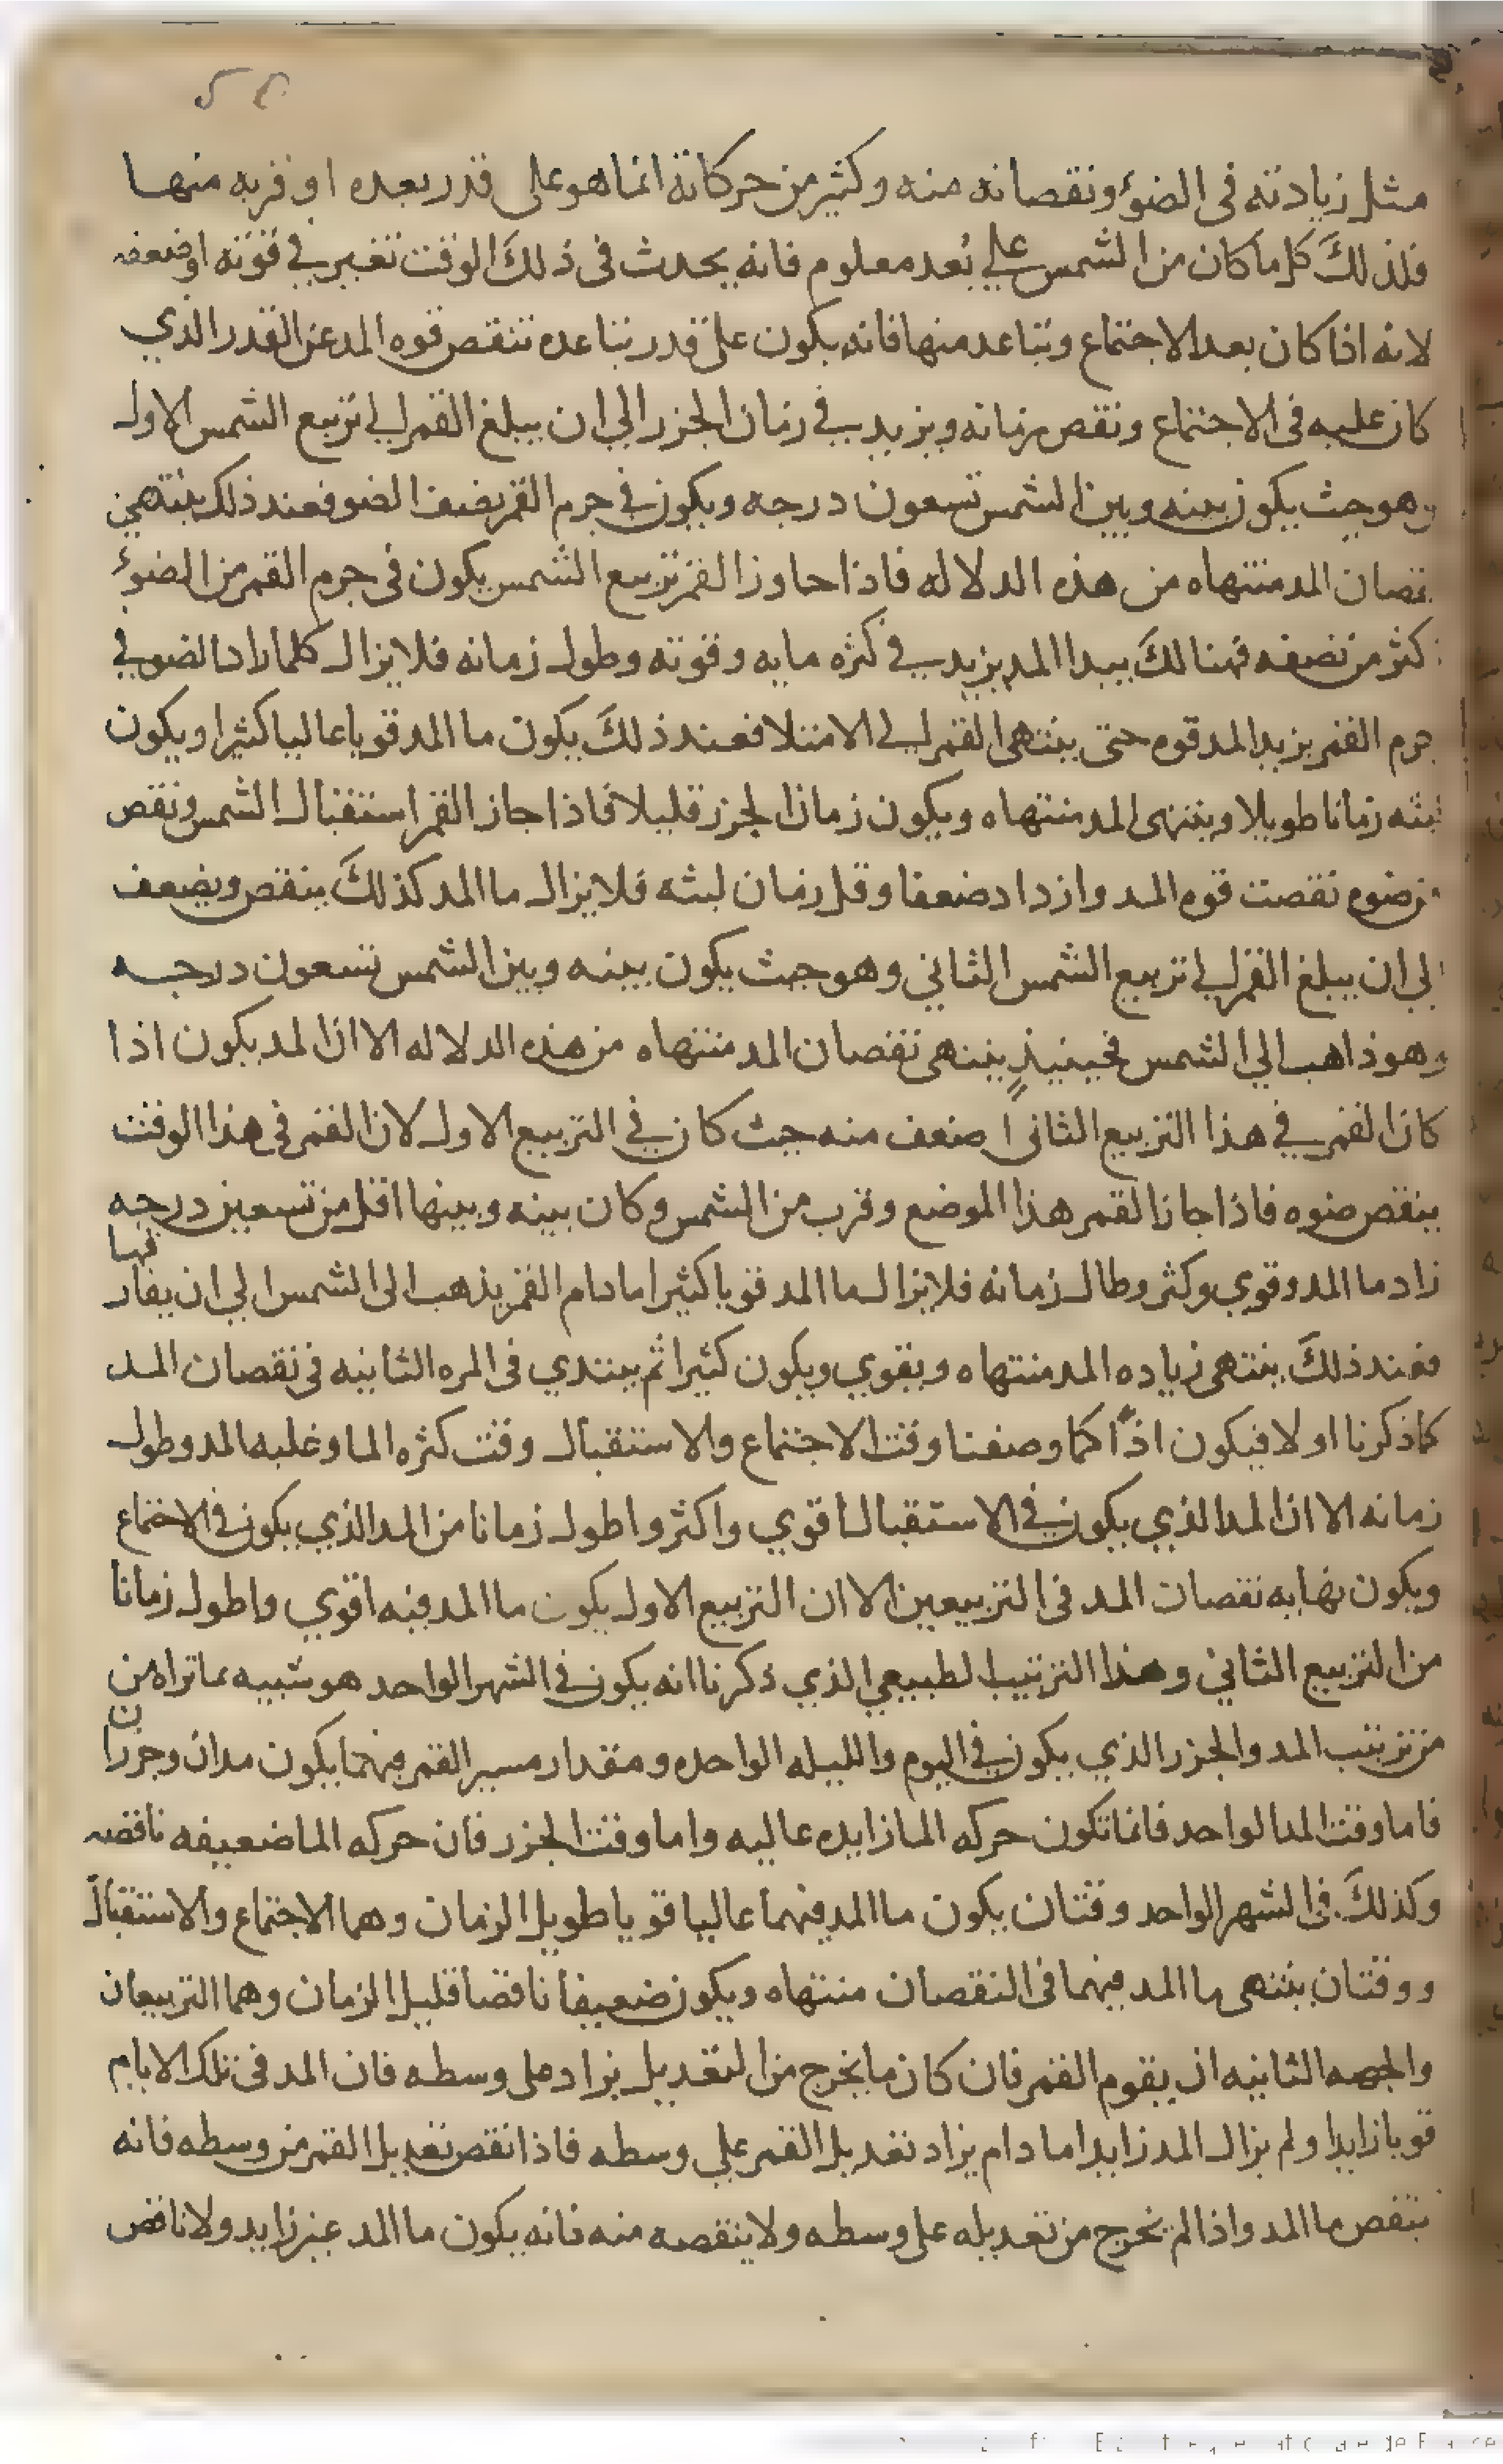 مثل زيادته فى الضوء ونقصانه منه وكثير من حركاته انما هو على قدر بعده او قربه منها
فلذلك كل ما كان من الشمس على بُعد معلوم فانه يحدث فى ذلك الوقت تغيير في قوته او ضعفه
لانه اذا كان بعد الاجتماع وتباعد منها فانه يكون على قدر تباعده تنقص قوه المد عن القدر الذي
كان عليه فى الاجتماع ونقص زمانه ويزيد في زمان الجزر الي ان يبلغ القمر الي تربيع الشمس الاول
وهو حيث يكون بينه وبين الشمس تسعون درجه ويكون في جرم القمر نصف الضو فعند ذلك ينتهي
نقصان المد منتهاه من هذه الدلاله فاذا جاوز القمر تربيع الشمس يكون فى جرم القمر من الضوء
اكثر من نصفه فهنالك يبدا المد يزيد في كثره مايه وقوته وطول زمانه فلا يزال كلما زاد الضو في
جرم القمر يزيد المد قوه حتى ينتهى القمر الي الامتلا فعند ذلك يكون ما المد قويا عاليا كثيرا ويكون
لبثه زمانا طويلا وينتهى المد منتهاه ويكون زمان الجزر قليلا فاذا جاز القمر استقبال الشمس ونقص
من ضوه نقصت قوه المد وازداد ضعفا وقل زمان لبثه فلا يزال ما المد كذلك ينقص ويضعف
الي ان يبلغ القمر الي تربيع الشمس الثاني وهو حيث يكون بينه وبين الشمس تسعون درجه
وهو ذاهب الي الشمس فحينيذٍ ينتهى نقصان المد منتهاه من هذه الدلاله الا ان المد يكون اذا
كان القمر في هذا التربيع الثانى اضعف منه حيث كان في التربيع الاول لان القمر فى هذا الوقت
ينقص ضوه فاذا جاز القمر هذا الموضع وقرب من الشمس وكان بينه وبينها اقل من تسعين درجه
زاد ما المد وقوي وكثر وطال زمانه فلا يزال ما المد قويا كثيرا ما دام القمر يذهب الى الشمس الي ان يقارنها
فعند ذلك ينتهى زياده المد منتهاه ويقوي ويكون كثيرا ثم يبتدي فى المره الثانيه فى نقصان المد
كما ذكرنا اولا فيكون اذًا كما وصفنا وقت الاجتماع والاستقبال وقت كثره الما وغلبه المد وطول
زمانه الا ان المد الذي يكون في الاستقبال اقوي واكثر واطول زمانا من المد الذي يكون في الاجتماع
ويكون نهايه نقصان المد فى التربيعين الا ان التربيع الاول يكون ما المد فيه اقوي واطول زمانا
من التربيع الثاني وهذا الترتيب الطبيعي الذي ذكرنا انه يكون في الشهر الواحد هو شبيه بما تراه من
من ترتيب المد والجزر الذي يكون في اليوم والليله الواحده ومقدار مسير القمر فيهما يكون مدان وجزران
فاما وقت المد الواحد فانما تكون حركه الما زايده عاليه واما وقت الجزر فان حركه الما ضعيفه ناقصه
وكذلك فى الشهر الواحد وقتان يكون ما المد فيهما عاليا قويا طويل الزمان وهما الاجتماع والاستقبال
ووقتان ينتهى ما المد فيهما فى النقصان منتهاه ويكون ضعيفا ناقصا قليل الزمان وهما التربيعان
والجهه الثانيه ان يقوم القمر فان كان ما يخرج من التعديل يزاد على وسطه فان المد فى تلك الايام
قويا زايدا ولم يزال المد زايدا ما دام يزاد تعديل القمر علي وسطه فاذا نقص تعديل القمر من وسطه فانه
ينقص ما المد واذا لم يخرج من تعديله على وسطه ولا ينقصه منه فانه يكون ما المد غير زايد ولا ناقص